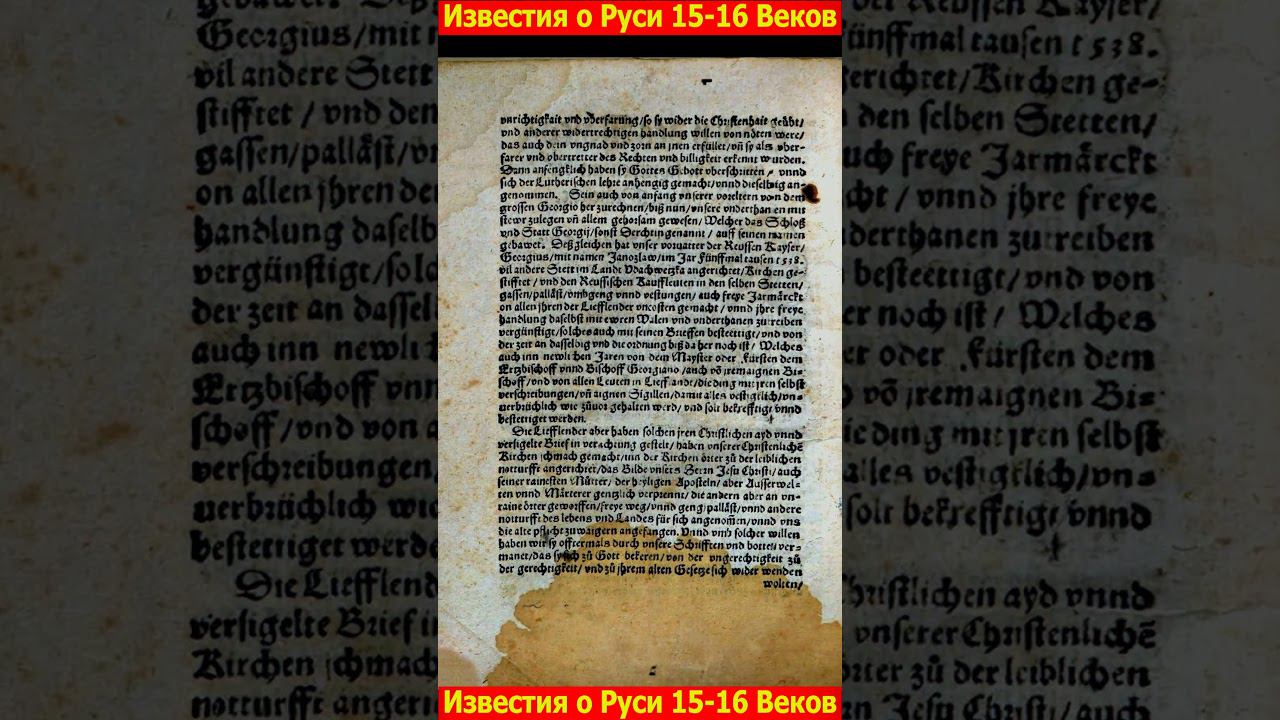 Известия о Руси 15-16 Веков
vnrichtigkait vnd vberfarung/so sy wider die Christenhait geübt/
vnd anderer widertrechtigen handlung willen von nöten were/
das auch dein vngnad vnd zorn an jnen erfüllet/vñ sy als vber-
farer vnd vbertretter des Rechten vnd billigkeit erkent wurden.
Dann anfengklich haben sy Gottes Gebott vberschritten/ vnnd
sich der Lutherischen lehre anhengig gemacht/vnnd dieselbig an-
genommen. Sein auch von anfang vnserer voreltern von dem
grossen Georgio her zurechnen/biß nun/vnsere vnderthan en mit
stewr zulegen vñ allem gehorsam gewesen/Welcher das Schloß
vnd Statt Georgij/sonst Derchtin genannt/ auff seinen namen
gebawet. Deßgleichen hat vnser voruatter der Reussen Kayser/
Georgius/mit namen Janozlaw/im Jar fünffmal tausen t 538.
vil andere Stett im Landt Vdachwetzka angerichtet/Kirchen ge-
stifftet/ vnd den Reussischen Kauffleuten in den selben Stetten/
gassen/palläst/vmbgeng vnnd vestungen/ auch freye Jarmärckt
on allen jhren der Liefflender vncosten gemacht/ vnnd jhre freye
handlung daselbst mit ewren Walen vnd vnderthanen zu treiben
vergünstigt/solches auch mit seinen Brieffen besteettigt/vnd von
der zeit an dasselbig vnd die ordnung biß da her noch ist/ Welches
auch inn newlichen Jaren von dem Mayster oder Fürsten dem
Ertzbischoff vnnd Bischoff Georgiano/auch võ jrem aignen Bi-
schoff/vnd von allen Leuten in Lieff landt/die ding mit jren selbst
verschreibungen/vñ aignen Sigillen/damit alles vestigklich/vn-
uerbrüchlich wie züuor gehalten werd/ vnd solt bekrefftigt vnnd
bestettiget werden.
Die Liefflender aber haben solchen jren Christlichen ayd vnnd
versigelte Brief in verachtung gestelt/ haben vnserer Christenlichẽ
Kirchen schmach gemacht/inn der Kirchen örter zů der leiblichen
notturfft angerichtet/das Bilde vnsers Herrn Jesu Christi/auch
seiner rainesten Mütter/ der heyligen Aposteln/ aber Ausserwel-
ten vnnd Märterer gentzlich verprennt/ die andern aber an vn-
raine ötter geworffen/freye weg/vnnd geng/palläst/vnnd andere
notturfft des lebens vnd Landes für sich angenom̃en/vnnd vns
die alte pflicht zuwaigern angefangen. Vnnd vmb solcher willen
haben wir sy offtermals durch vnsere Schrifften vnd botten ver-
manet/das sy sich zů Gott bekeren/von der vngerechtigkeit zů
der gerechtigkeit/ vnd zů jhrem alten Gesetze sich wider wenden
wolten/
Известия о Руси 15-16 Веков